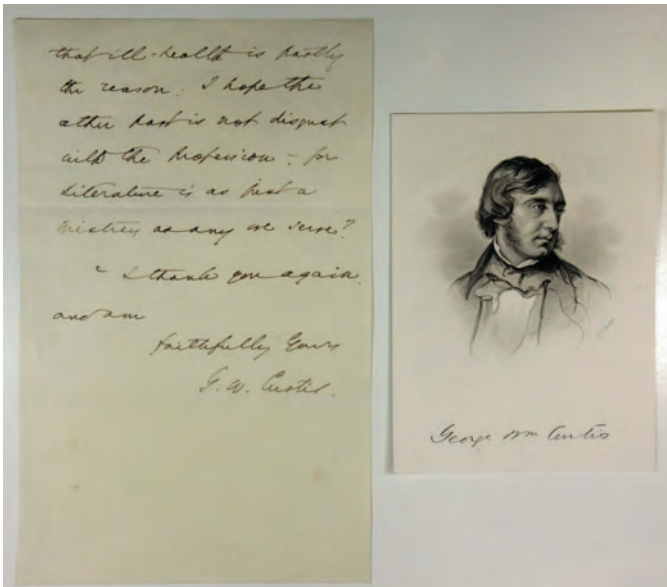 that ill-health is partly
the reason. I hope the
other part is not disgust
with the profession - for
Literature is as just a
mistress as any we serve?
I thank you again,
and am
faithfully yours
G. W. Curtis.
George Wm Curtis